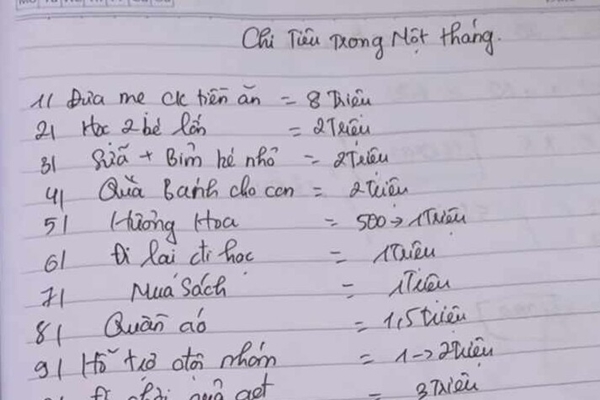 Chi Tiêu Trong Một tháng.
1/ Đưa mẹ ck tiền ăn = 8 Triệu
2/ Học 2 bé lớn = 2 Triệu
3/ Sữa + Bỉm bé nhỏ = 2 Triệu
4/ Quà Bánh cho con = 2 Triệu
5/ Hương Hoa = 500 → 1 Triệu
6/ Đi lại đi học = 1 Triệu
7/ Mua Sách = 1 Triệu
8/ Quần áo = 1,5 triệu
9/ Hỗ trợ = 1 → 2 Triệu
= 3 Triệu